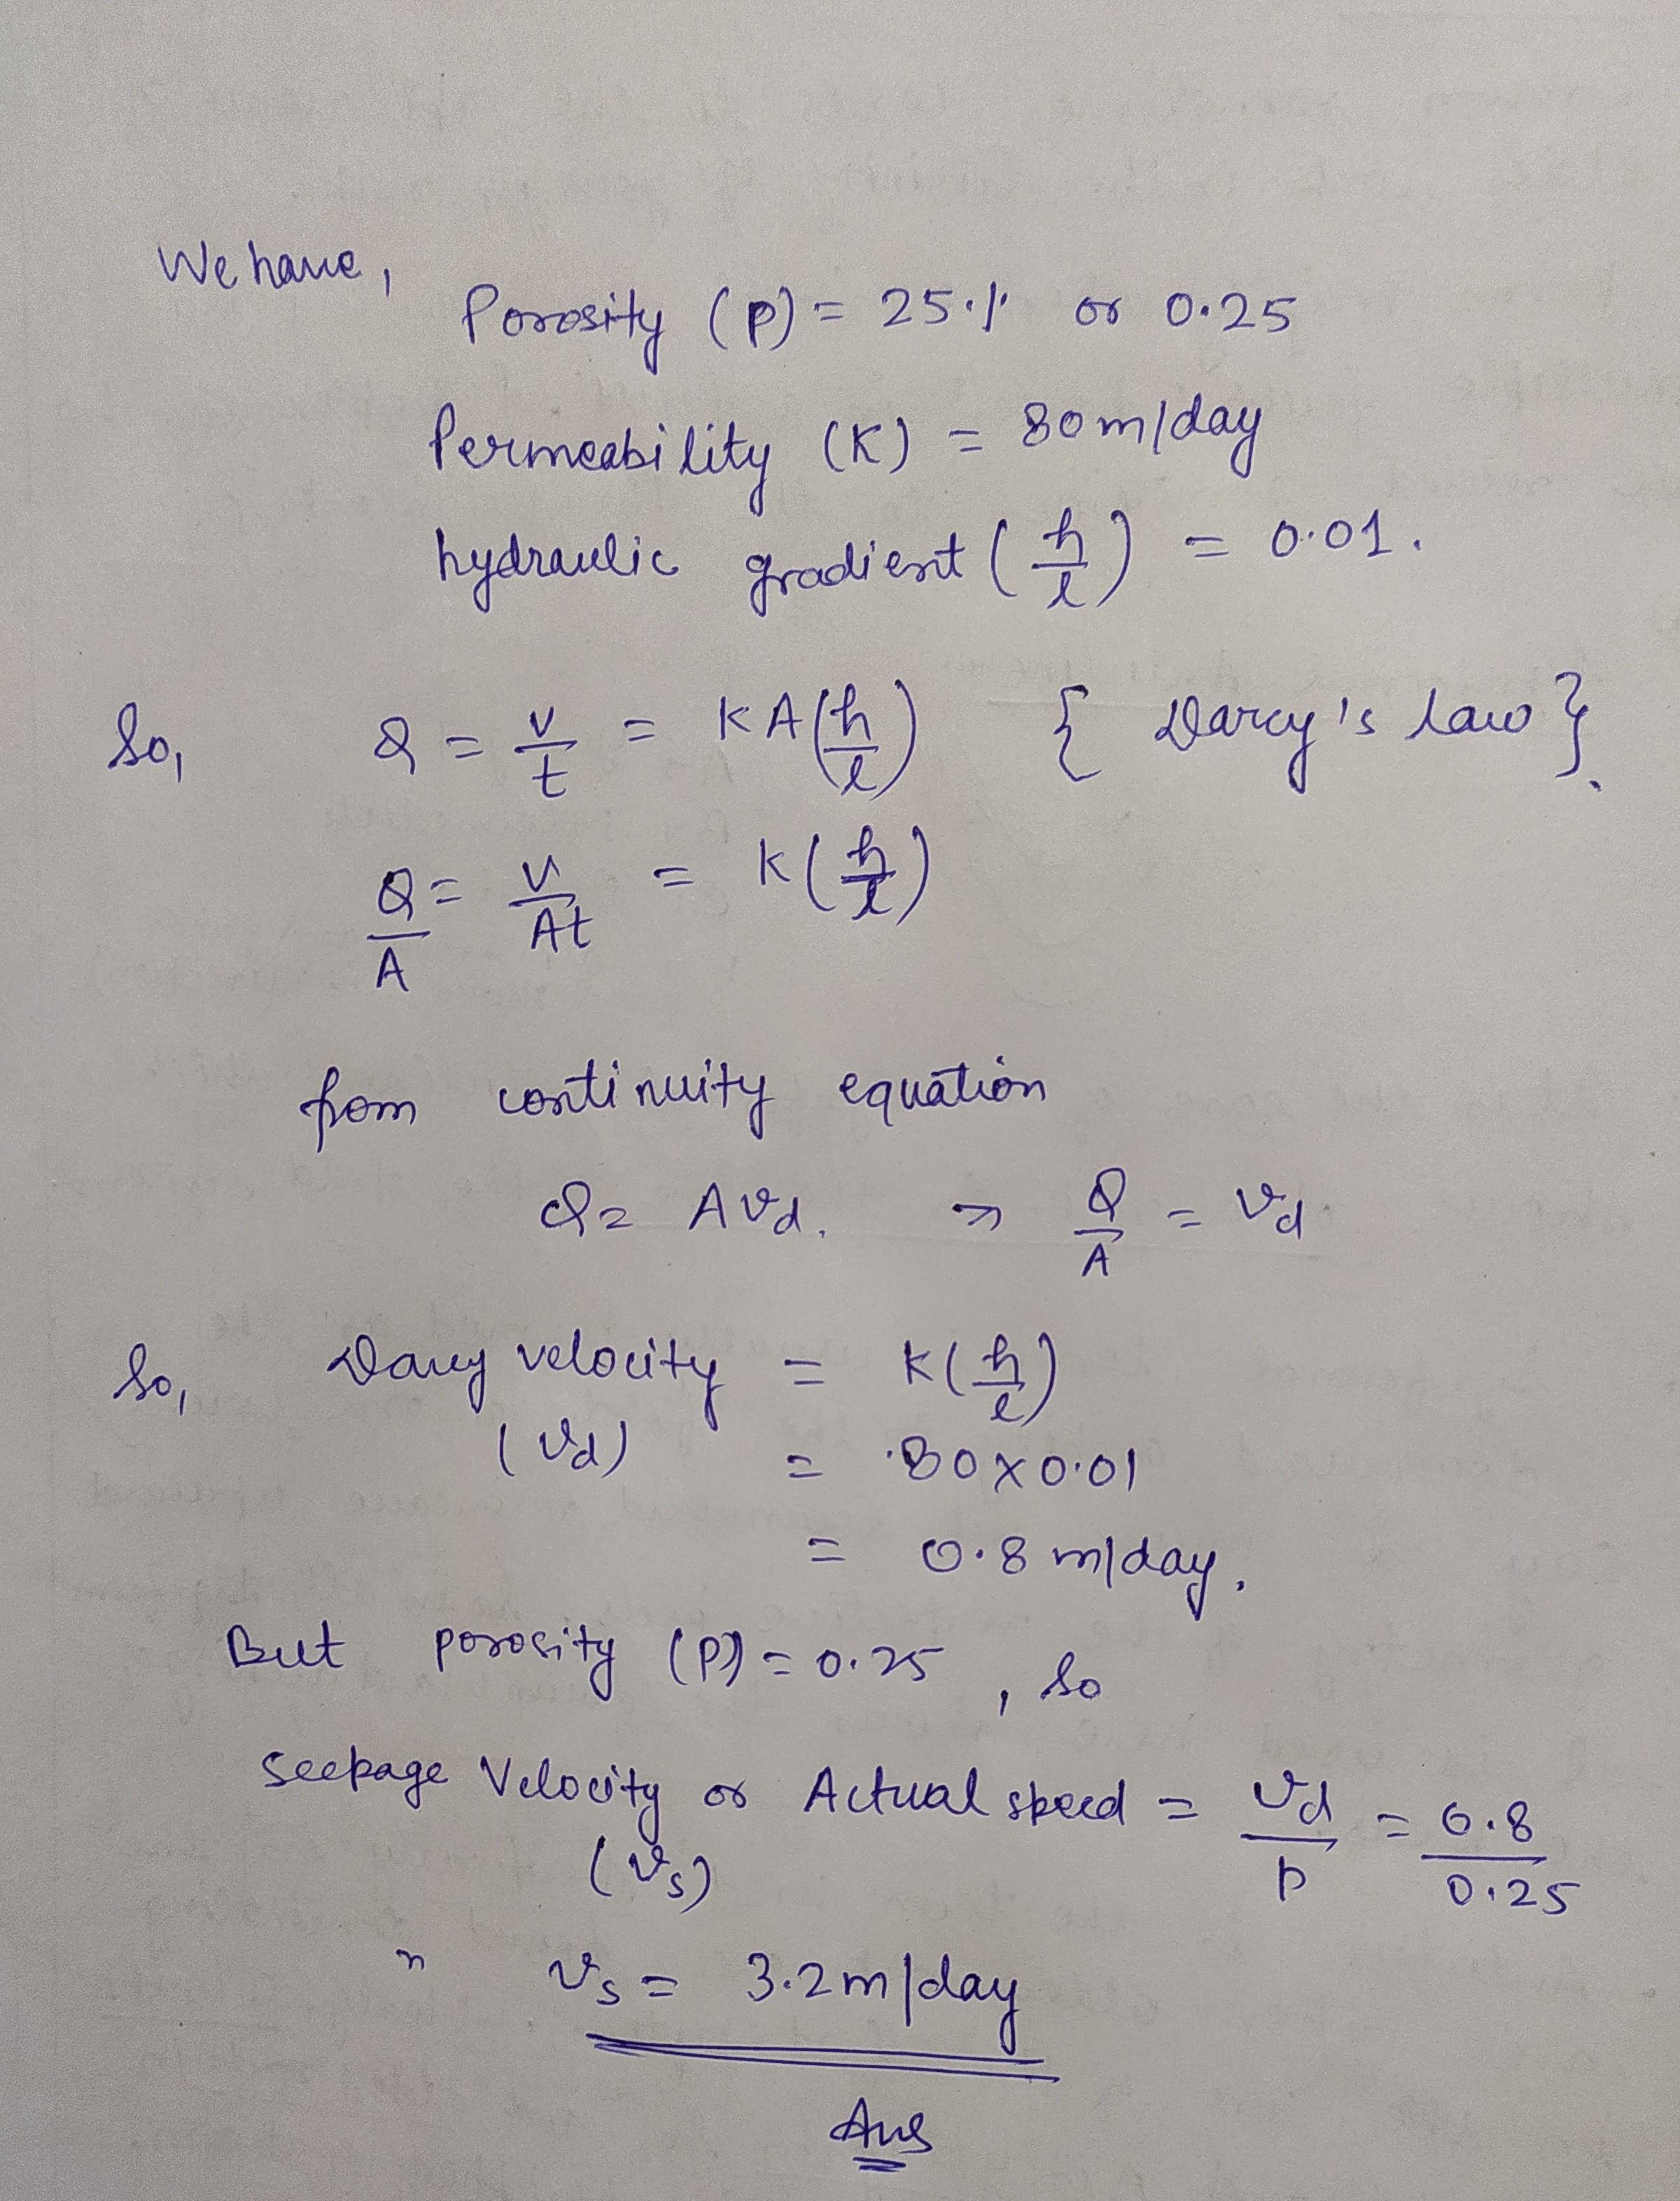 We have,
Porosity (P) = 25% or 0.25
Permeability (K) = 80m/day
hydraulic gradient (h/l) = 0.01.
So, Q = V/t = KA(h/l) { Darcy's law }.
Q/A = V/At = K(h/l)
from continuity equation
Q = AVd. ⇒ Q/A = Vd.
So, Darcy velocity = K(h/l)
(Vd) = 80×0.01
= 0.8 m/day.
But porosity (P) = 0.25, so
Seepage Velocity or Actual speed = Vd/p = 0.8/0.25
(Vs)
Vs = 3.2m/day
Ans